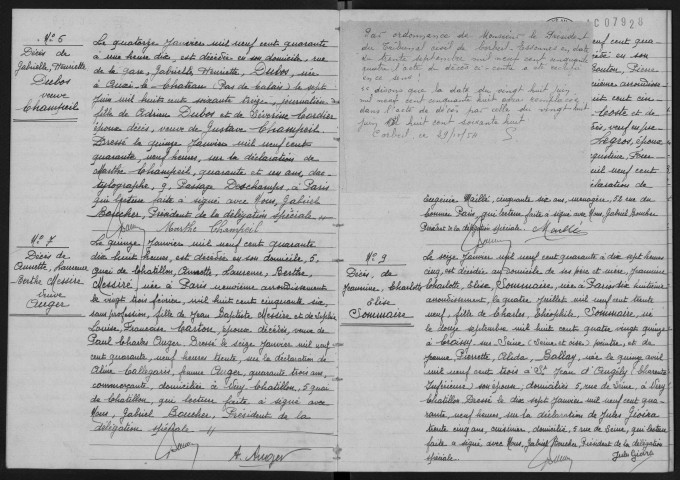 N° 6
Décès de
Gabrielle, Henriette
Dubos
veuve
Champeil
Le quatorze Janvier mil neuf cent quarante
à une heure dix, est décédée en son domicile, rue
de la Gare, Gabrielle, Henriette, Dubos, née
à (Pas de Calais) le sept
Juin mil huit cent soixante journalière,
fille de Adrien Dubos et de Séverine Cordier
époux décédés, veuve de Gustave Champeil.
Dressé le quinze Janvier mil neuf cent
quarante, neuf heures, sur la déclaration de
Marthe Champeil, quarante et un ans, dac-
tylographe, 9, Passage Deschamps, à Paris
qui lecture faite a signé avec Nous, Gabriel
Boucher, Président de la délégation spéciale.
Marthe Champeil
N° 7
Décès de
Annette, Laurence
Berthe Messire
veuve
Auger
Le quinze Janvier mil neuf cent quarante
dix huit heures, est décédée en son domicile, 5,
quai de Chatillon, Annette, Laurence, Berthe,
Messire, née à Paris neuvième arrondissement
le vingt trois février, mil huit cent cinquante six,
sans profession, fille de Jean Baptiste Messire et de
Louise, Françoise Carton, époux décédés, veuve de
Paul Charles Auger. Dressé le seize Janvier mil neuf
cent quarante, neuf heures trente sur la déclaration de
Aline femme Auger, quarante trois ans,
commerçante, domiciliée à Viry-Chatillon, 5, quai
de Chatillon, qui lecture faite a signé avec
Nous, Gabriel Boucher, Président de la
délégation spéciale.
A. Auger
C07928
Par ordonnance de Monsieur le Président
du Tribunal civil de Corbeil-Essonnes en date
du trente septembre mil neuf cent cinquante
quatre l'acte de décès ci-contre a été rectifié
en ce sens :
"disons que la date du vingt huit juin
mil neuf cent quarante huit sera remplacée
dans l'acte de décès par celle du vingt huit
juin mil huit cent soixante huit
Corbeil le 29/10/54
neuf cent qua-
en son
arrondisse-
cent cin
Coste et de
épouse
mil neuf cent
déclaration de
Eugénie Maillé, cinquante six ans, ménagère, 52 rue du
Paris, qui lecture faite a signé avec Nous, Gabriel Boucher
Président de la délégation spéciale.
Maillé
N° 9
Décès de
Jeannine, Charlotte
Elise
Sommaire
Le seize Janvier mil neuf cent quarante à dix sept heures
cinq, est décédée au domicile de ses père et mère, Jeannine
Charlotte, Elise, Sommaire, née à Paris dix huitième
arrondissement, le quatre Juillet mil neuf cent trente
neuf, fille de Charles, Théophile, Sommaire, né
le douze septembre mil huit cent quatre vingt quinze
à Croissy-sur-Seine (Seine et Oise) peintre, et de
Jeanne, Pierrette, Alida, Ballay, née le quinze avril
mil neuf cent trois à St Jean d'Angély (Charente
Inférieure) son épouse, domiciliés 5, rue de Seine, à Viry
Chatillon. Dressé le dix sept Janvier mil neuf cent qua-
rante, neuf heures, sur la déclaration de Jules
trente cinq ans, cuisinier, domicilié, 5 rue de Seine, qui lecture
faite a signé avec Nous, Gabriel Boucher, Président de la délégation
spéciale.